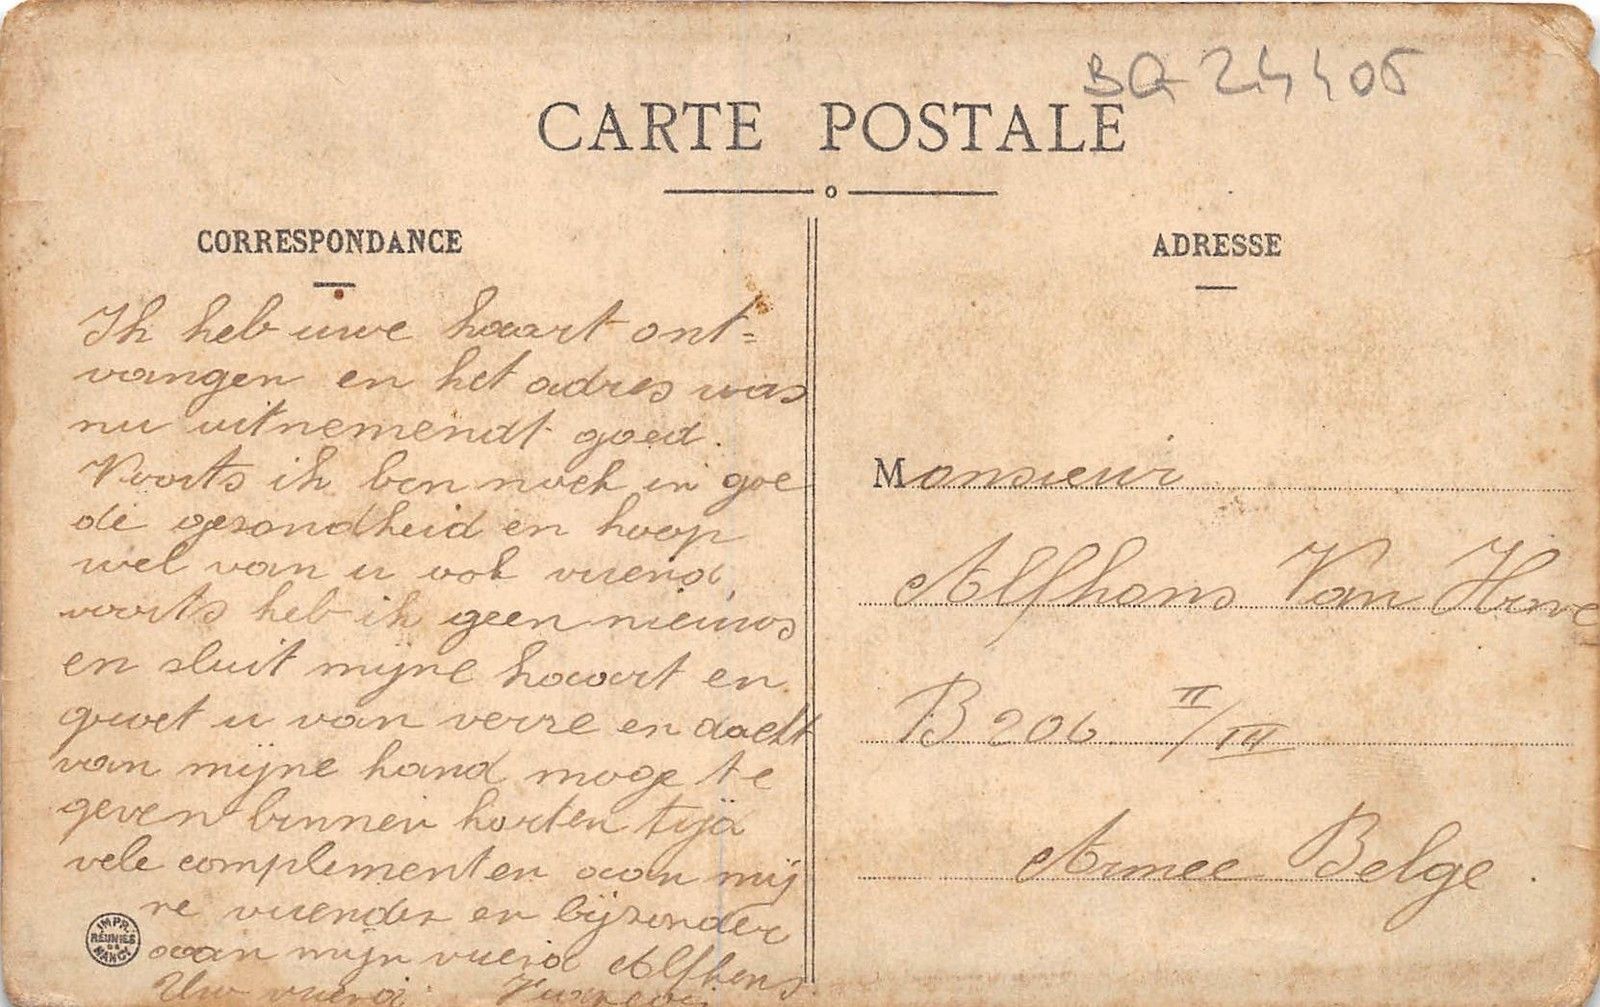 CARTE POSTALE
CORRESPONDANCE
Ik heb uwe kaart ont=
vangen en het adres was
nu uitnemendt goed.
Voorts ik ben noch in goe
de gezondheid en hoop
wel van u ook vriend
voorts heb ik geen nieuws
en sluit mijne kaart en
groet u van verre en dacht
van mijne hand moge te
geven binnen korten tijd
vele complementen aan mij
ne vriender en bijzonder
aan mijn vriend Alfhens
Uw vriend
IMPR. RÉUNIES DE NANCY
ADRESSE
Monsieur
Alfhons Van
B 206 II/III
Armee Belge.